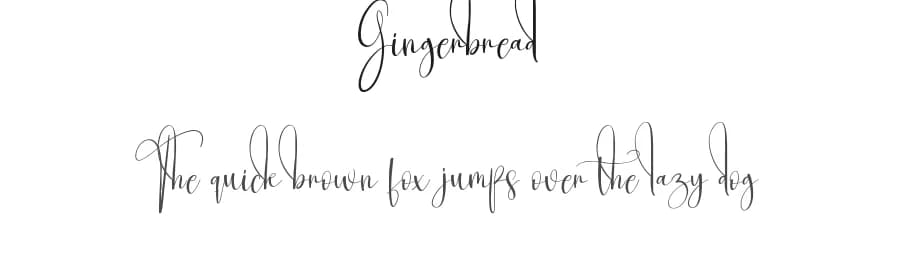 Gingerbread
The quick brown fox jumps over the lazy dog